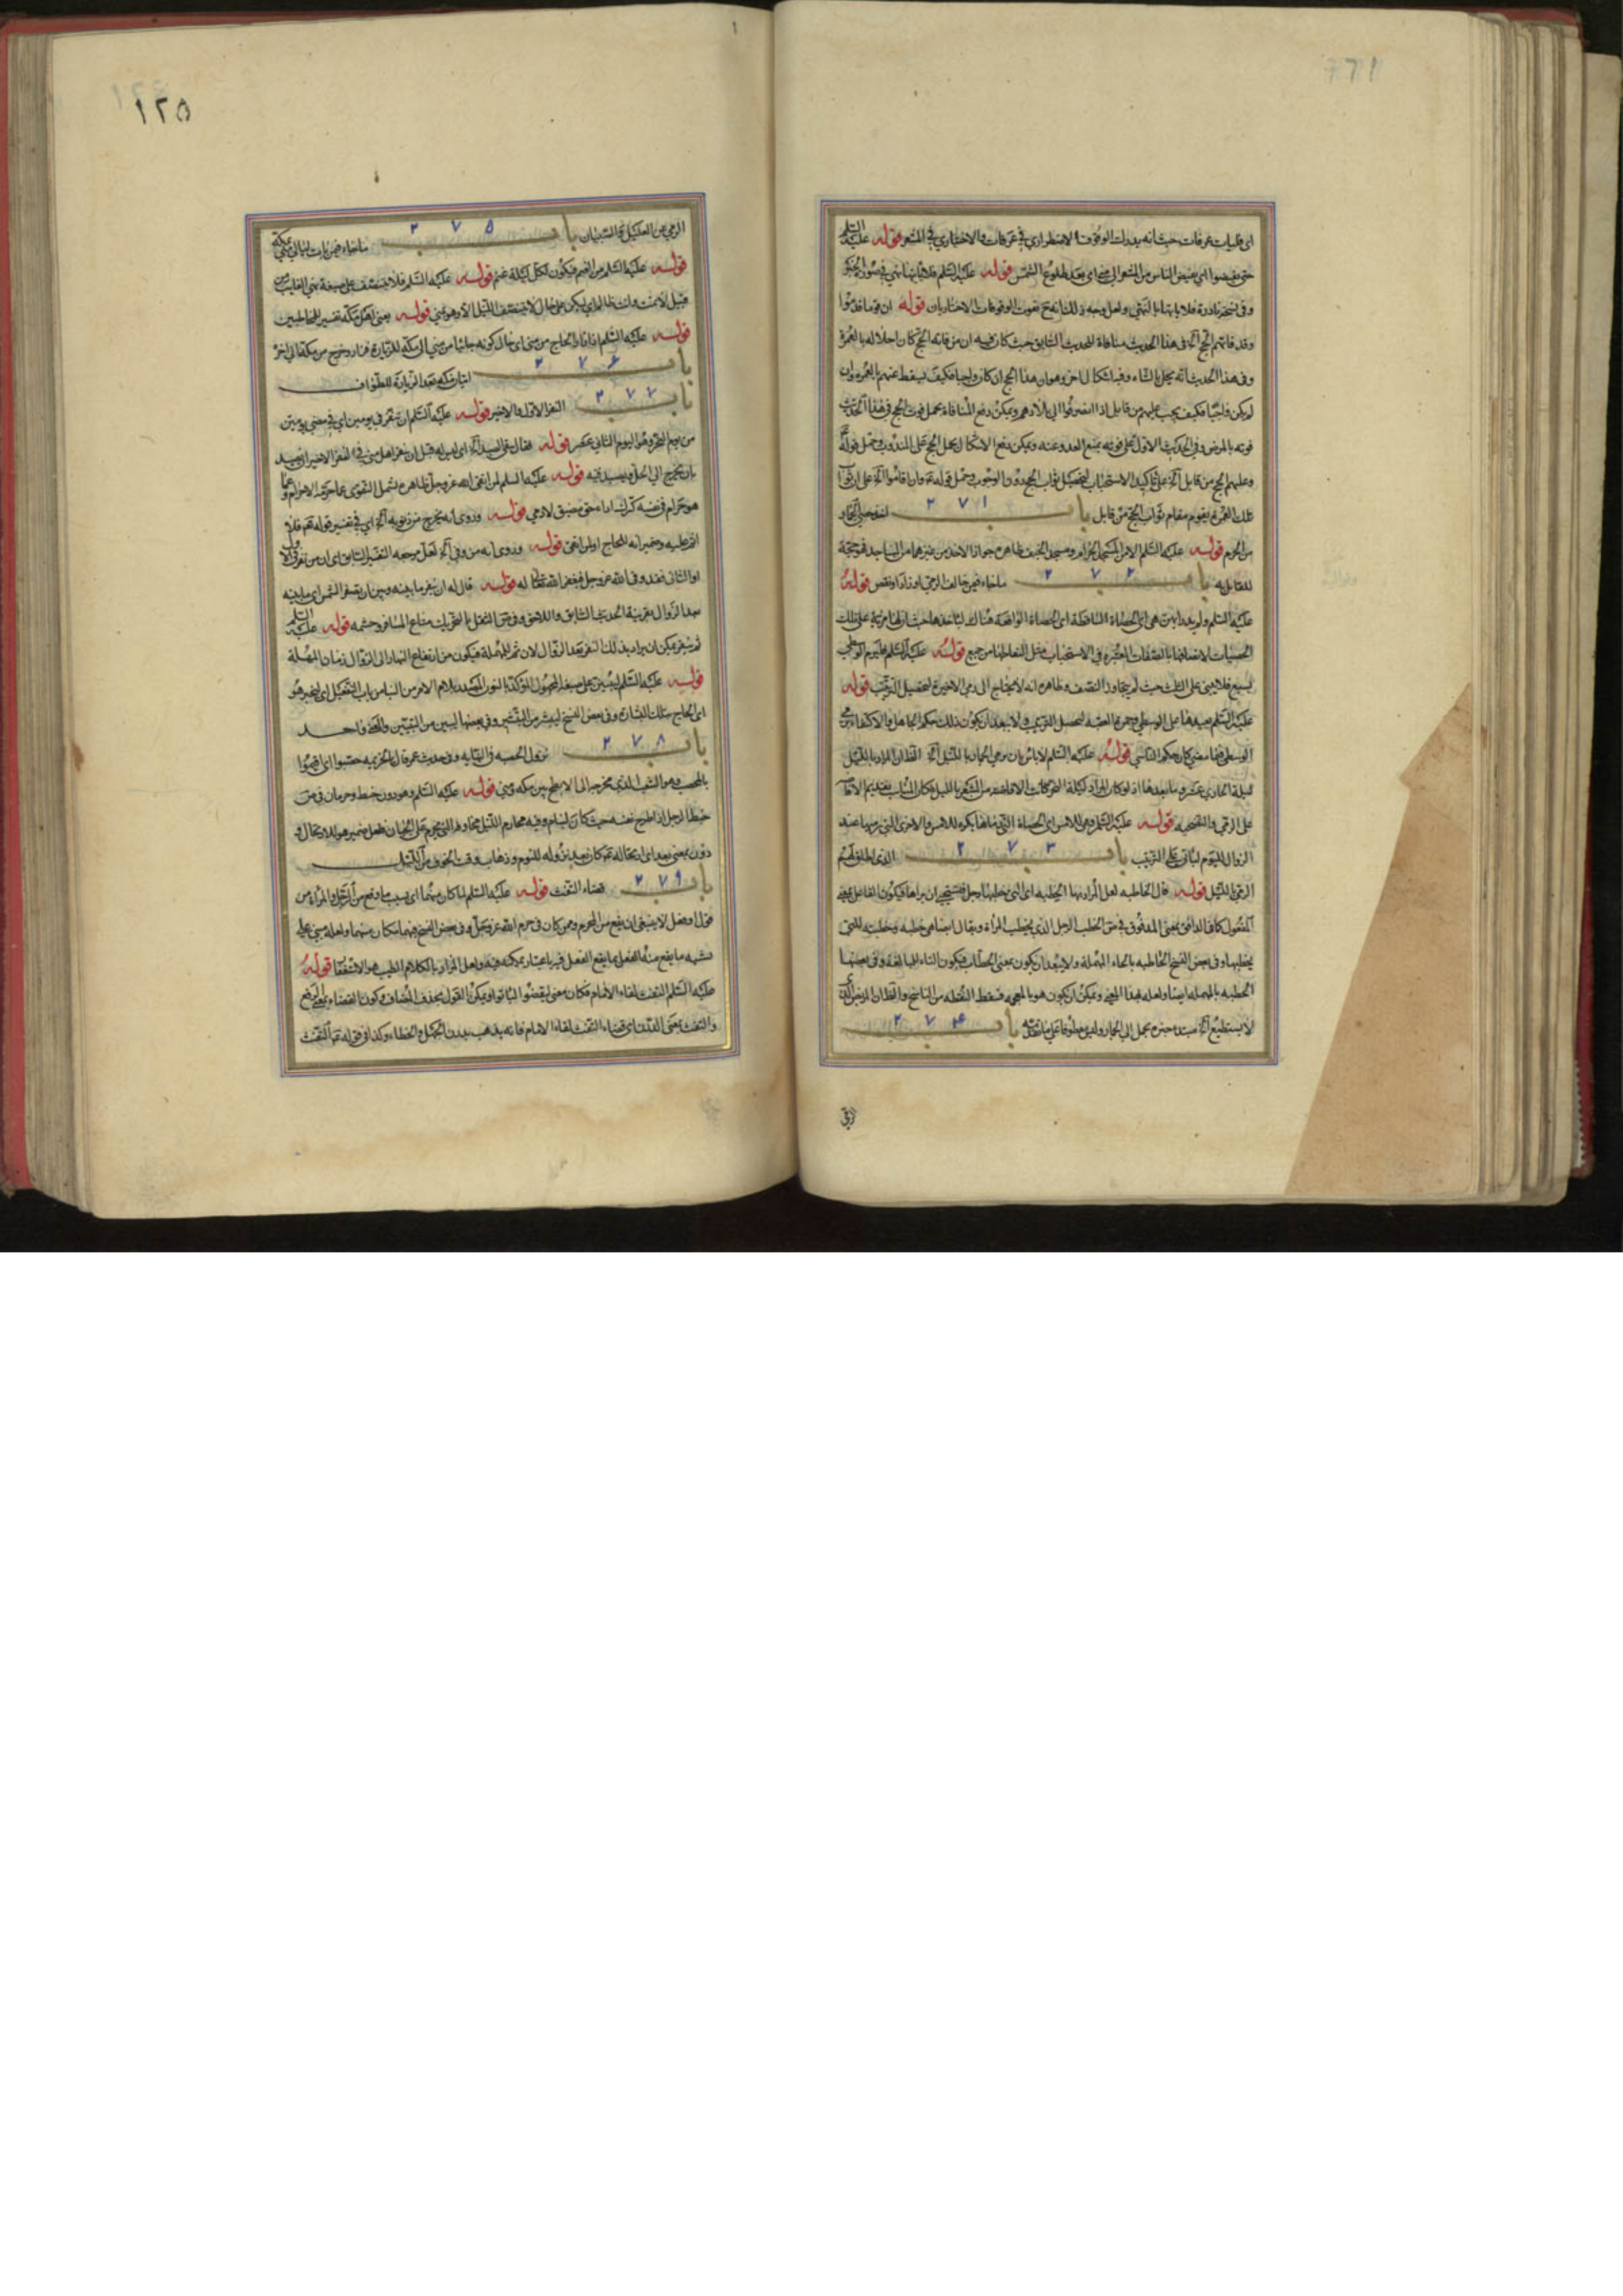 اى فليات عرفات حيث انه يدرك الوقوف الاضطرارى فى عرفات والاختيارى فى المشعر قوله عليه السلم
حتى يفيضوا اى يفيض الناس من المشعر الى منى اى بعد طلوع الشمس قوله عليه السلم فلا
وفى نسخة نادرة فلا ياتها بالنهى ولعل وجهه ذلك انه ح يفوت الوقوفات الاختياريان قوله ان قوما قدموا
وقد فاتهم الحج آه فى هذا الحديث منافاة للحديث السابق حيث كان فيه ان من فاته الحج كان احلاله بالعمرة
وفى هذا الحديث انه يحل بالشاة وفيه اشكال اخر وهو ان هذا الحج ان كان واجبا فكيف يسقط عنهم بالعمرة وان
لم يكن واجبا فكيف يجب عليهم من قابل اذا انصرفوا الى بلادهم ويمكن دفع المنافاة بحمل فوت الحج فى هذا الحديث
فوته بالمرض وفى الحديث الاول على فوته بمنع العدو عنه ويمكن دفع الاشكال بحمل الحج على المندوب وحمل قوله
وعليهم الحج من قابل آه على تاكيد الاستحباب لتحصيل ثواب الحج دون الوجوب وحمل قوله وان اقاموا آه على ان ثواب
تلك العمرة يقوم مقام ثواب الحج من قابل باب ٢٧١ اخذ حصى الجمار
من الحرم قوله عليه السلم الا من المسجد الحرام ومسجد الخيف ظاهره جواز الاخذ من غيرهما من المساجد فهو حجة
للقائل به باب ٢٧٢ ماجاء فيمن خالف الرمى او زاد او نقص قوله
عليه السلم ولم يدر ايهن هى اى الحصاة الساقطة اى الحصاة الواقعة هناك لياخذها حيث ان لها مزية على تلك
الحصيات لاتصافها بالصفات المعتبرة فى الاستحباب مثل التقاطها من جمع قوله عليه السلم فليرم الوسطى
بسبع فلا يبنى على الثلث حيث لم يتجاوز النصف وظاهره انه لا يحتاج الى رمى الاخيرة لتحصيل الترتيب قوله
عليه السلم يعيدها على الوسطى وجمرة العقبة لتحصيل الترتيب ولا يبعد ان يكون ذلك حكم الجاهل والاكتفاء برمى
الوسطى فيما مضى كان حكم الناسى قوله عليه السلم لا باس بان يرمى الجمار بالليل آه الظ ان المراد بالليل
ليلة الحادى عشر وما بعدها اذ لو كان المراد ليلة النحر كانت الافاضة من المشعر بالليل فكان المناسب تقديم الافاضة
على الرمى والتضحية قوله عليه السلم وهى للامس اى الحصاة التى رماها بكرة للامس والاخرى التى يرميها عند
الزوال لليوم لياتى على الترتيب باب ٢٧٣ الذى اطلق لهم
الرمى بالليل قوله قال الخاطبة لعل المراد بها الخطبة اى التى يخطبها رجل فتستحيى ان يراها فيكون الفاعل بمعنى
المفعول كماء الدافق بمعنى المدفوق فى ص الخطب الرجل الذى يخطب المرأة ويقال ايضا هى خطبه وخطبته للتى
يخطبها وفى بعض النسخ الحاطبة بالحاء المهملة ولا يبعد ان يكون بمعنى الحطاب فيكون التاء للمبالغة وفى بعضها
الحطبة بالمهملة ايضا ولعله بهذا المعنى ويمكن ان يكون هو بالمعجمة فسقط النقطة من الناسخ والظ ان المريض الذى
لا يستطيع آه مبتدا خبره يحمل الى الجمار وليس معطوفا على ما تقدمه باب ٢٧٤
الرمى
١٢٥
الرمى عن العليل والصبيان باب ٢٧٥ ماجاء فيمن بات ليالى منى بمكة
قوله عليه السلم من الغنم فيكون لكل ليلة غنم قوله عليه السلم فلا ينتصف على صيغة نهى الغايب من
قبيل لا تمت وانت ظالم اى ليكن على حال لا ينتصف الليل الا وهو بمنى قوله يعنى اهل مكة تفسير للمخاطبين
قوله عليه السلم اذا زار الحاج من منى اى حال كونه جائيا من منى الى مكة للزيارة فزار وخرج من مكة الى اخره
باب ٢٧۶ اتيان مكة بعد الزيارة للطواف
باب ٢٧٧ النفر الاول والاخير قوله عليه السلم ان تنفر فى يومين اى فى مضى يومين
من يوم النحر وهو اليوم الثانى عشر قوله
بان يخرج الى الحل ويصيد فيه قوله عليه السلم لمن اتقى الله عزوجل ظاهره يشمل التقوى عما حرمه الاحرام وعما
هو حرام فى نفسه كترك اداء حق مضيق لادمى قوله وروى انه يخرج من ذنوبه آه اى فى تفسير قوله تعه فلا
اثم عليه وضميرانه للحاج او لمن اتقى قوله وروى انه من وفى آه لعل مرجعه التفسير السابق اى ان من نفر فى الاول
او الثانى فقد وفى الله عزوجل فيغفر الله تعالى له قوله قال له ان ينفر ما بينه وبين ان يصفر الشمس اى ما بينه
بعد الزوال بقرينة الحديث السابق واللاحق وفى ص الثقل بالتحريك متاع المسافر وحشمه قوله عليه السلم
ثم ينفر يمكن ان يراد بذلك النفر بعد الزوال لان ثم للمهلة فيكون من ارتفاع النهار الى الزوال زمان المهلة
قوله
اى الحاج بتلك البشارة وفى بعض النسخ ليبشر من التبشير وفى بعضها ليبين من التبيين والمعنى واحد
باب ٢٧٨ نزول الحصبة فى النهاية وفى حديث عمر قال يا لخزيمة حصبوا اى اقيموا
بالمحصب وهو الشعب الذى مخرجه الى الابطح بين مكة ومنى قوله عليه السلم وهو دون خبط وحرمان فى ص
خبط الرجل اذا طرح نفسه حيث كان لينام وفيه محارم الليل مخاوفه التى يحرم على الجبان
دون بمعنى بعد اى ارتحاله ع كان بعيد نزوله للنوم وذهاب وقت الخوف من الليل
باب ٢٧٩ قضاء التفث قوله عليه السلم لما كان منهما اى بسبب ما وقع من الرجل والمرأة من
قول او فعل لا ينبغى ان يقع من المحرم ومن كان فى حرم الله عزوجل وفى بعض النسخ
تشبيه ما يقع منه الفعل بما يقع الفعل فيه باعتبار تمكنه فيه ولعل المراد بالكلام الطيب هو الاستغفار قوله
عليه السلم التفث لقاء الامام فكان معنى ليقضوا لياتوا ويمكن القول بحذف المضاف وكون القضاء بمعنى الرفع
والتفث بمعنى الدرن اى قضاء التفث لقاء الامام فانه يذهب بدرن الجهل والخطاء وكذا فى قوله ع التفث